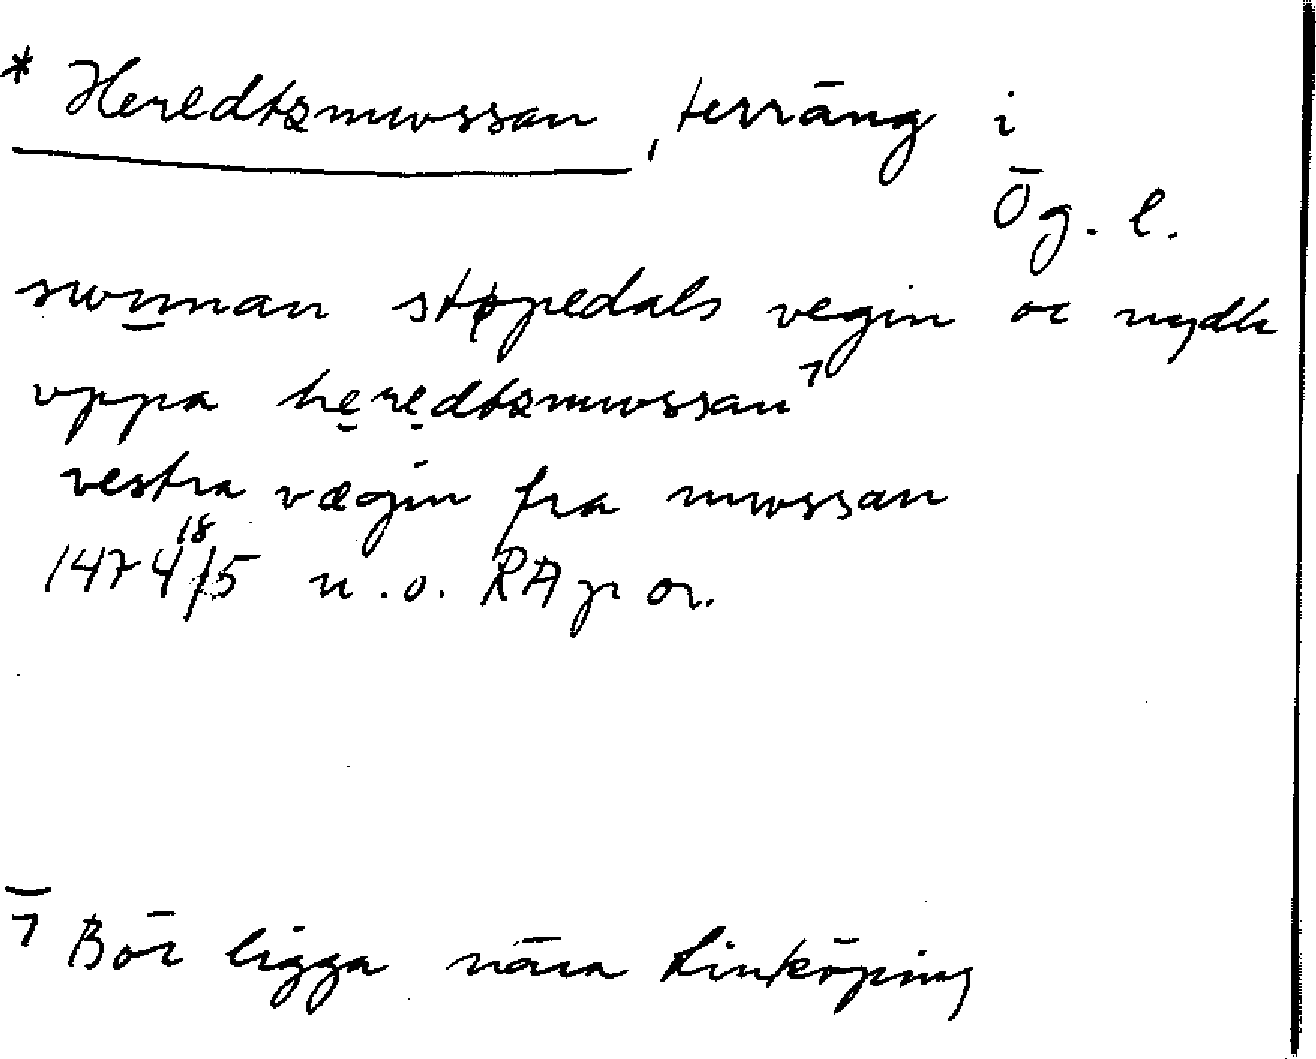 * Heredtzmwssan, terräng i
Ög. l.
swnnan støpedals vegin oc nydh
vppa heredtzmwssan ⁊
vestra vægin fra mwssan
1474 18/5 n.o. RAp or.
⁊ Bör ligga nära Linköping